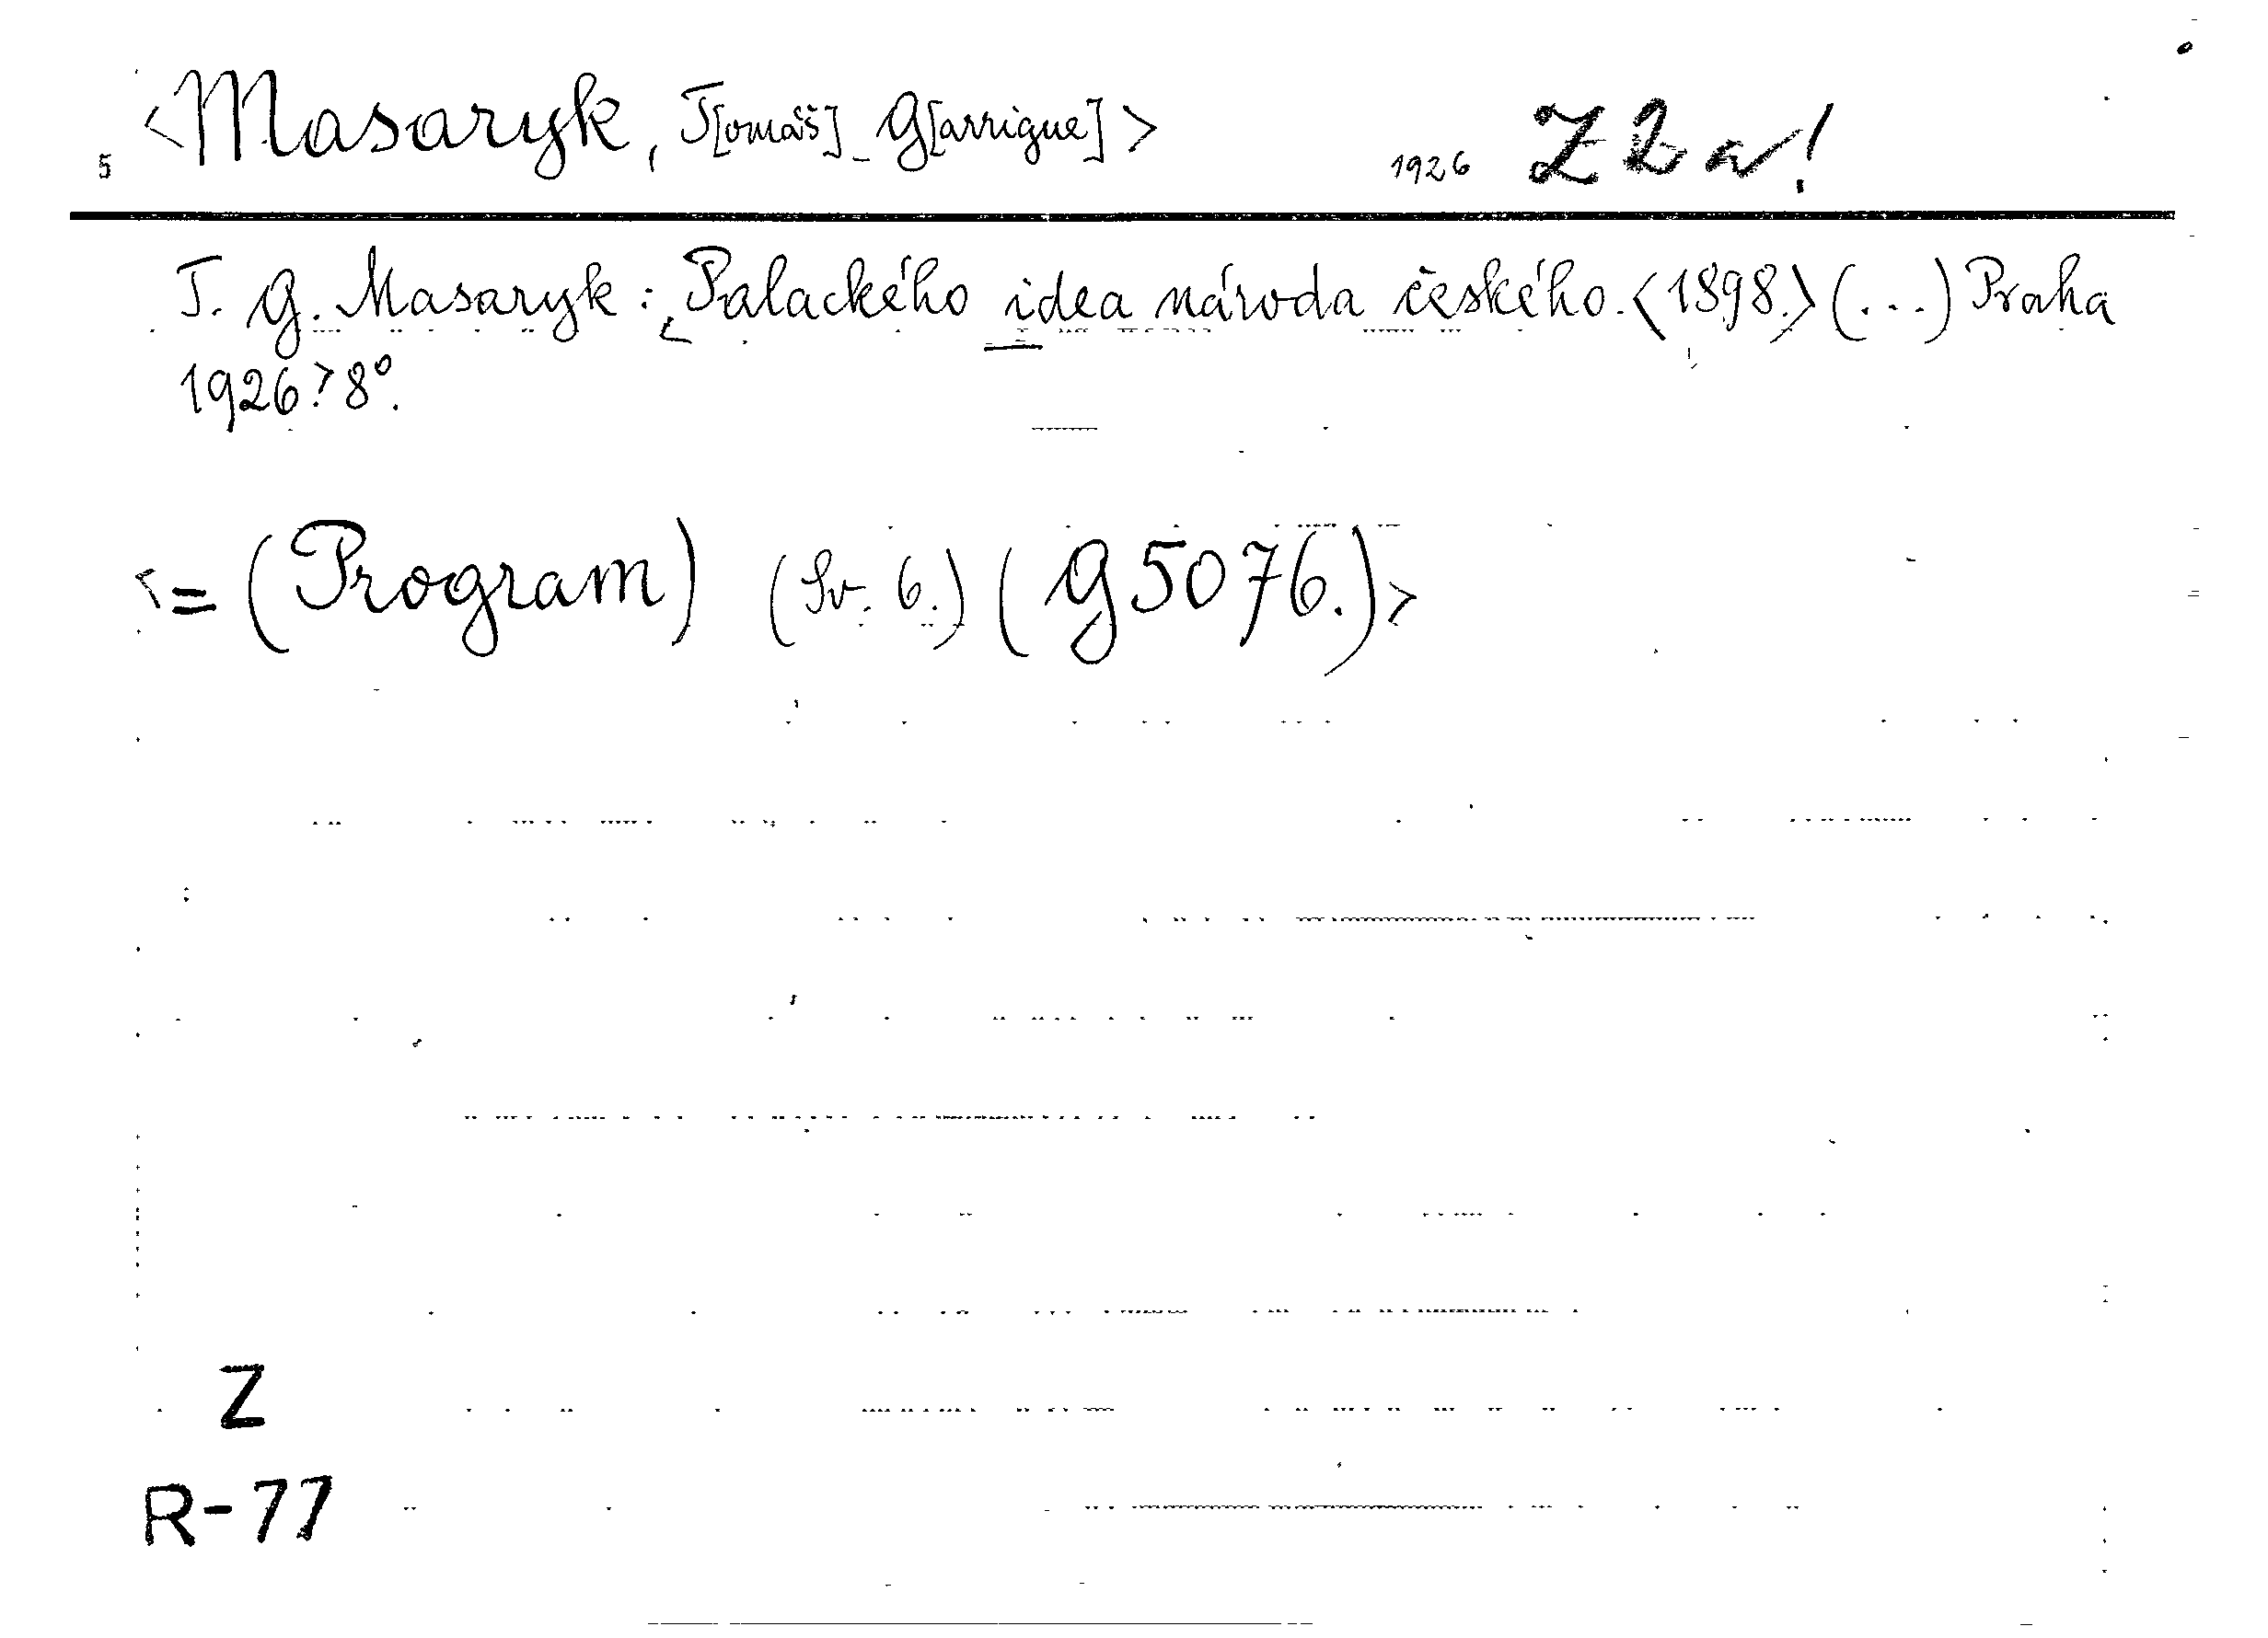 <Masaryk, T[omáš] G[arrigue]>
5 1926 Z 2 a!
T. G. Masaryk: <Palackého idea národa českého. <1898.> (...) Praha
1926> 8°.
<= (Program) (Sv. 6.) (G 5076.)>
Z
R-77